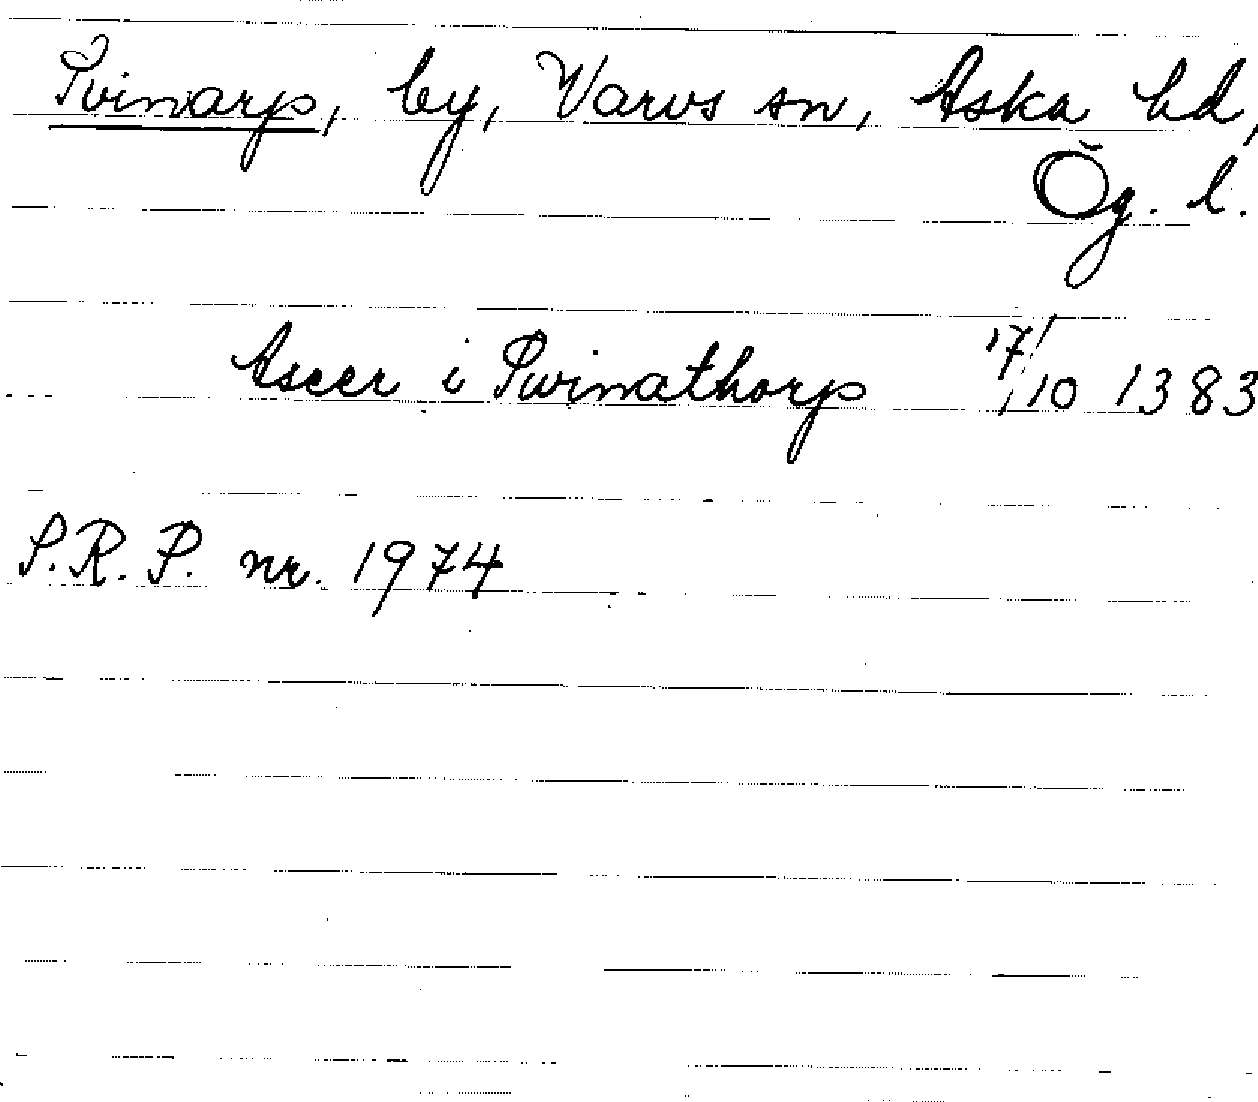 Svinarp, by, Varvs sn, Aska hd,
Ög. l.
Ascer i Swinathorp 17/10 1383
S.R.P. nr. 1974